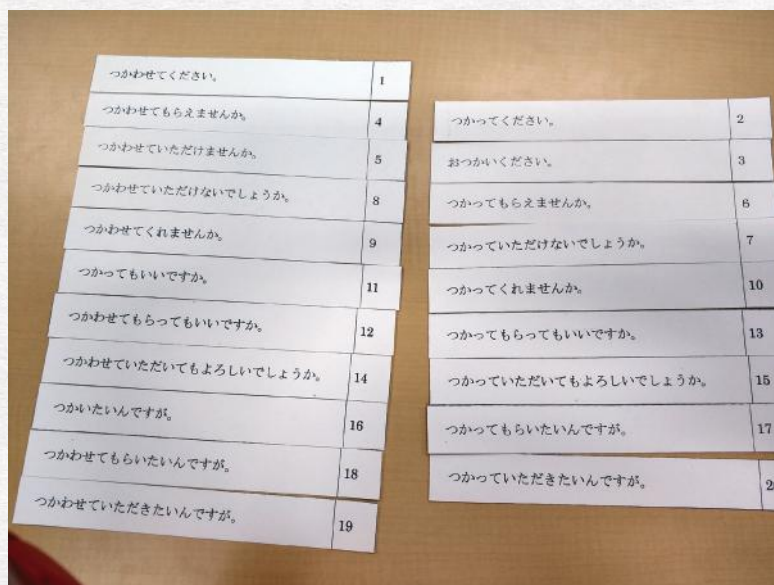 つかわせてください。 1
つかわせてもらえませんか。 4
つかわせていただけませんか。 5
つかわせていただけないでしょうか。 8
つかわせてくれませんか。 9
つかってもいいですか。 11
つかわせてもらってもいいですか。 12
つかわせていただいてもよろしいでしょうか。 14
つかいたいんですが。 16
つかわせてもらいたいんですが。 18
つかわせていただきたいんですが。 19
つかってください。 2
おつかいください。 3
つかってもらえませんか。 6
つかっていただけないでしょうか。 7
つかってくれませんか。 10
つかってもらってもいいですか。 13
つかっていただいてもよろしいでしょうか。 15
つかってもらいたいんですが。 17
つかっていただきたいんですが。